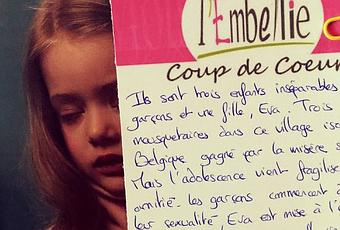 l'Embellie
Coup de Coeur
Ils sont trois enfants inséparables
garçons et une fille, Eva. Trois
mousquetaires dans ce village iso
Belgique gagné par la misère s
Mais l'adolescence vient fragilise
amitié. les garçons commencent à
leur sexualité, Eva est mise à l'é